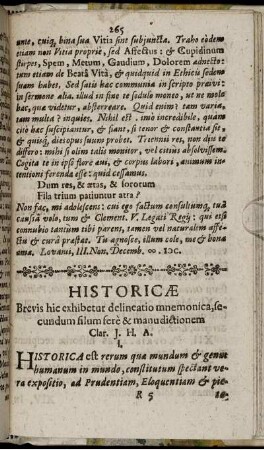 265
unte, cuiq, bina sua Vitia sint subjuncta. Traho eòdem
etiam non Vitia propriè, sed Affectus: & Cupidinum
stirpes, Spem, Metum, Gaudium, Dolorem adnecto:
tum etiam de Beatâ Vitâ, & quidquid in Ethicis sedem
suam habet. Sed satis hæc communia in scripto præivi:
in sermone alia, illud in fine te sedulo moneo, ut ne moles
hæc, qua videtur, absterreare. Quid enim? tam varia,
tam multa? inquies. Nihil est. imò incredibile, quam
citò hæc suscipiantur, & fiant, si tenor & constantia sit,
& quisq, ditopus suum probet. Ticinnii res, non diu te
differo: mihi si olim talis monitor, vel citius absolvissem.
Cogita te in ipso flore ani, & corpus labori, animum in-
tentioni ferenda esse: quid cessamus.
Dum res, & ætas, & sororum
Fila trium patiuntur atra?
Non fac, mi adolescens: cui ego factum consultumq, tuâ
causâ volo, tum & Clement. V. Legati Regii: qui etsi
connubio tantum tibi parens, tamen vel naturalim affe-
ctu & curâ præstat. Tu agnosce, illum cole, me & bona
ama. Lovanii, III. Non. Decemb. ∞. IƆC.
HISTORICÆ
Brevis hic exhibetur delineatio mnemonica, se-
cundum filum ferè & manudictionem
Clar. J. H. A.
I.
HISTORICA est rerum quæ mundum & genus
humanum in mundo, constitutum spectant ve-
ra expositio, ad Prudentiam, Eloquentiam & pie-
R 5